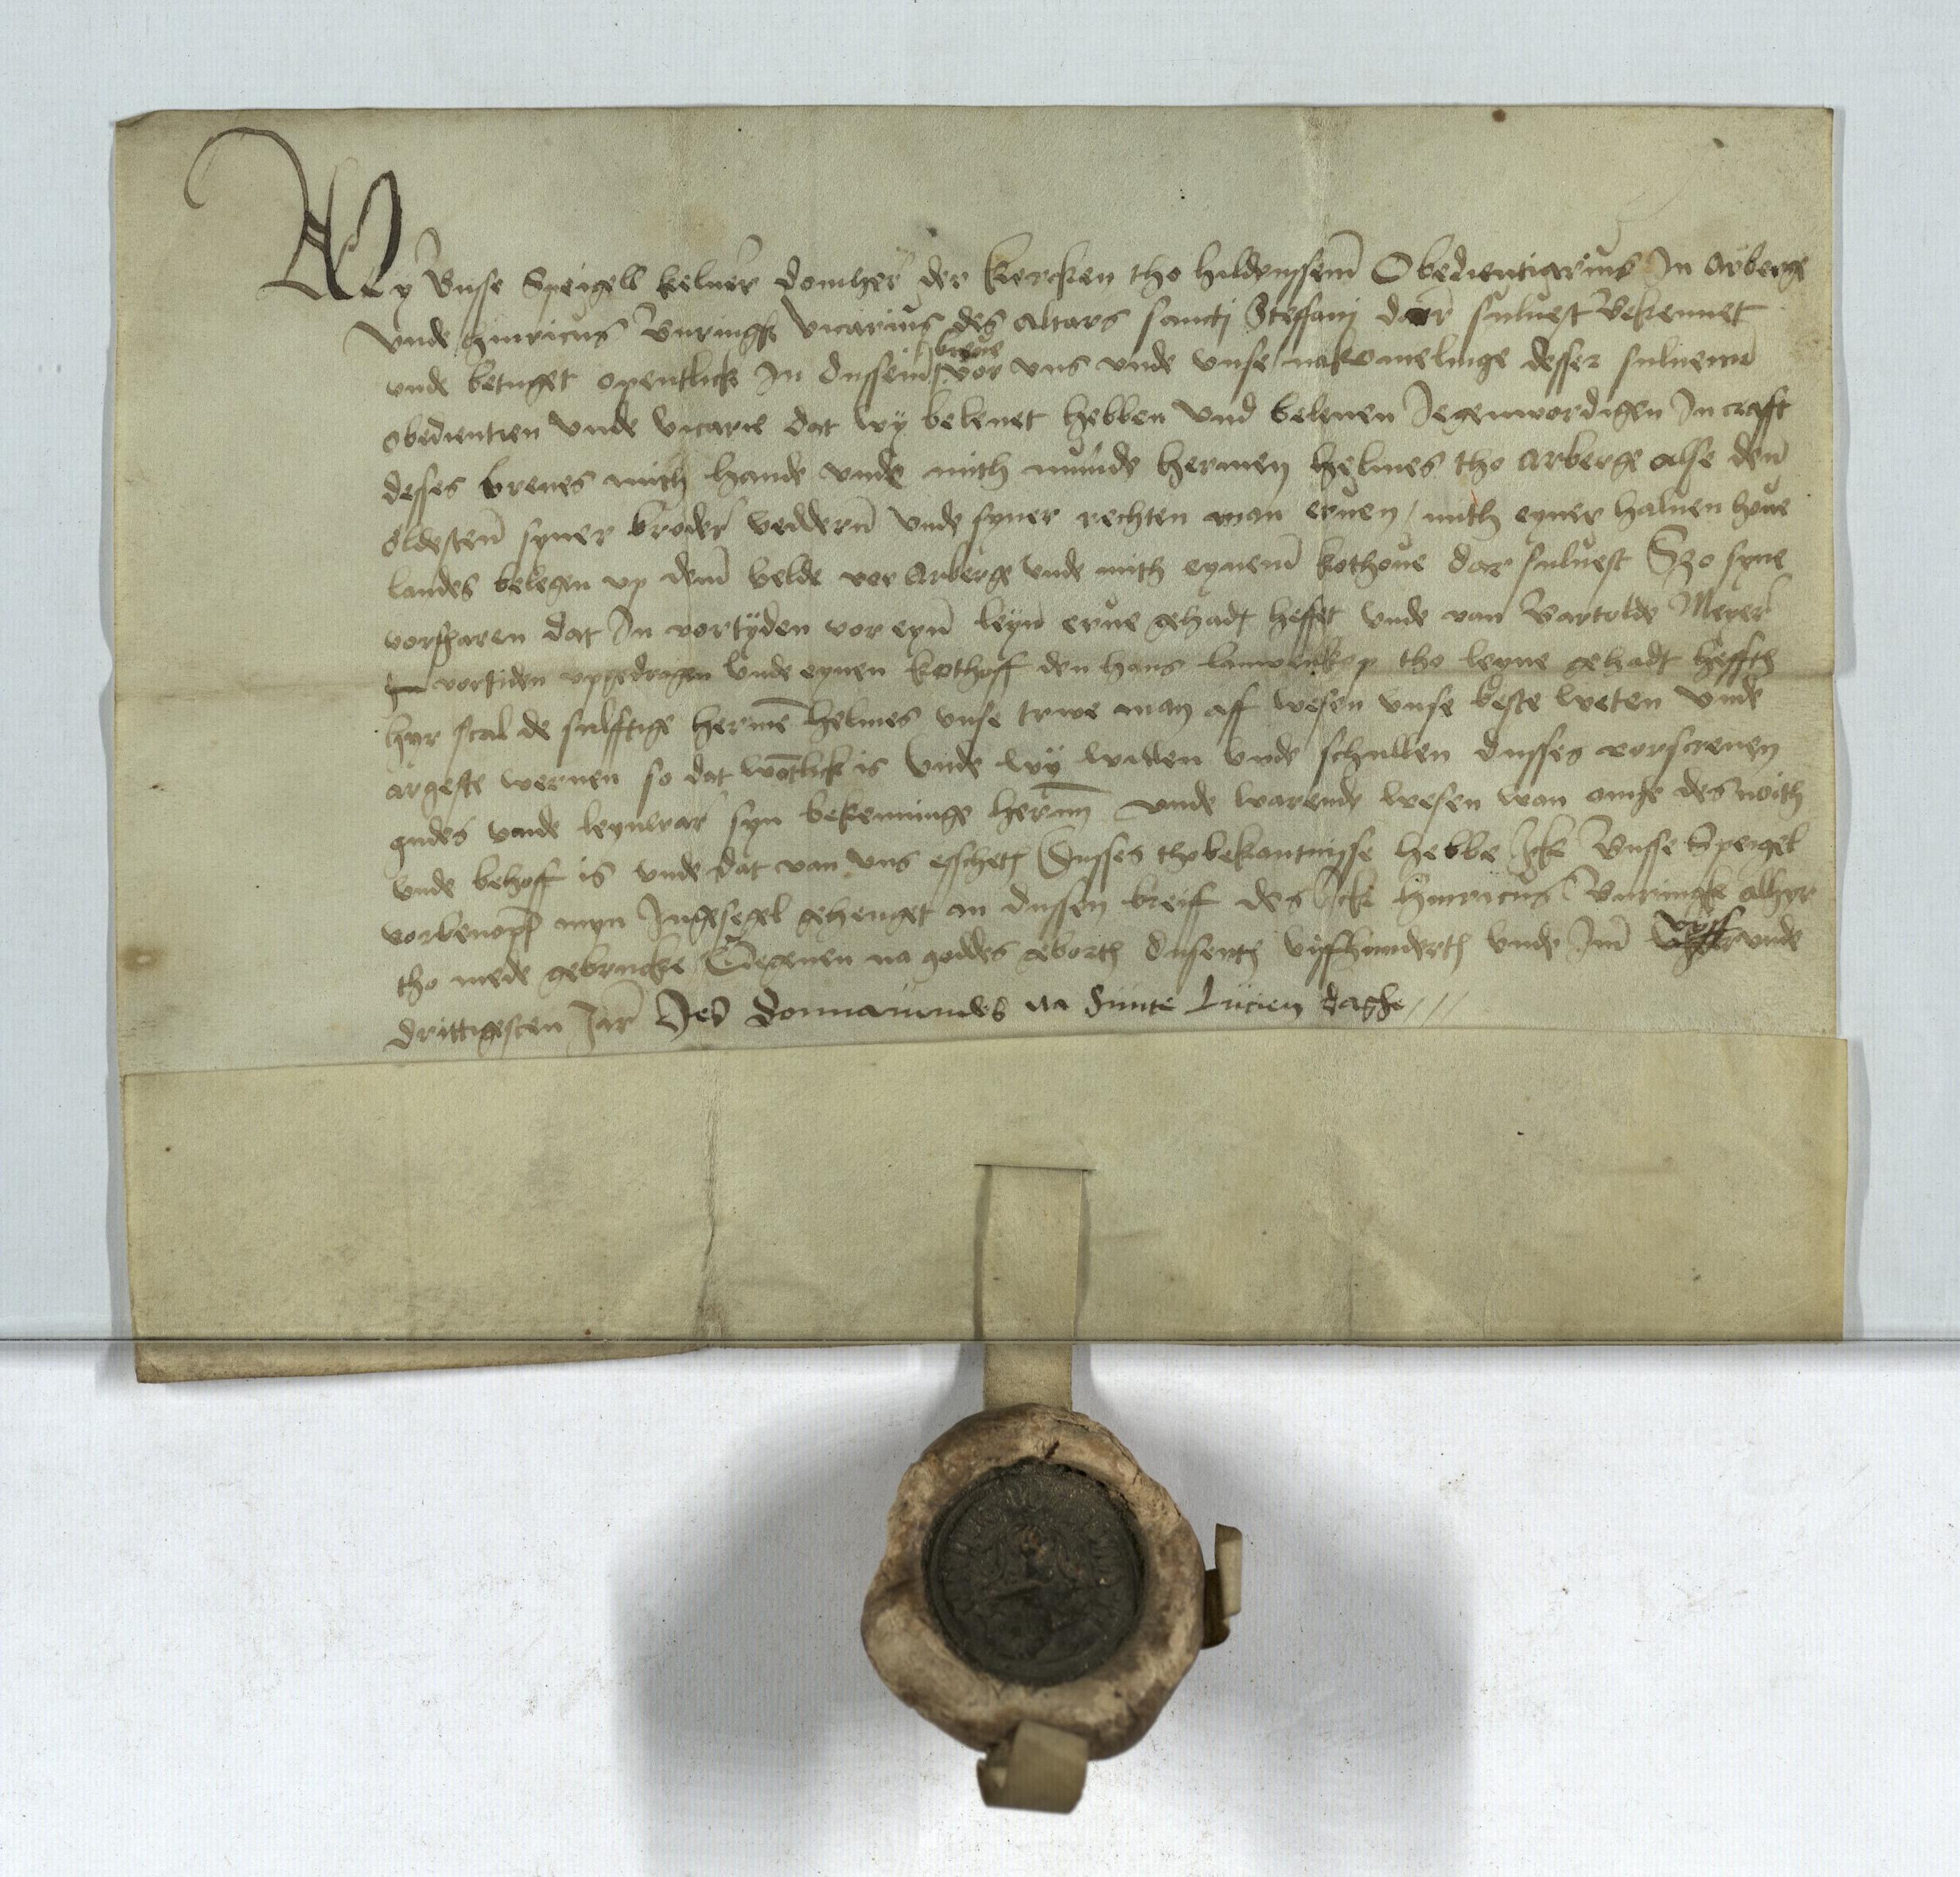 Wy Busse Speigell kelner domher der kercken tho hildenssem Obedientiarius In Arberge
vnde hinricus Buringk vicarius des altars sancti Steffani dar suluest Bekennet
vnde betuget opentlick In dussem breue vor vns vnde vnse nakomelinge desser suluenn
obedientien vnde vicarie dat wy belenet hebben vnd belenen Jegenwordigen In crafft
desses breues mith hande vnde mith munde hermen helmes tho Arberge alse den
oldesten syner broder vedderen vnde syner rechten man eruen / mith eyner haluen houe
landes belegen vp dem velde vor Arberge vnde mith eynem kothoue dar suluest Szo syne
vorfharen dat In vortyden vor eyn leyn erue gehadt heffet vnde van Bartolde Meyer
vortiden vpgedragen vnde eynen kothoff den hans tho leyne gehadt heffth
hyr scal de sulfftige hermē helmes vnse trwe man aff wesen vnse beste weten vnde
argeste weruen so dat wōtlick is vnde wy willen vnde schullen dusses vorscreuen
gudes vnde leynwar syn bekenninge herrn vnde warende wesen wan ome des noith
vnde behoff is vnde dat van vns esscheth Dusses tho bekantnisse hebbe Ick Busse Speigel
vorbenopt myn Ingesegel gehenget an dussen breiff des Ick hinricus Buringk alhyr
tho mede gebrucke Gegeuen na goddes geborth dusenth vyffhunderth vnde Im vyff vnde
drittigesten Jar Des Donnauendes na Sunte Lucien daghe ///